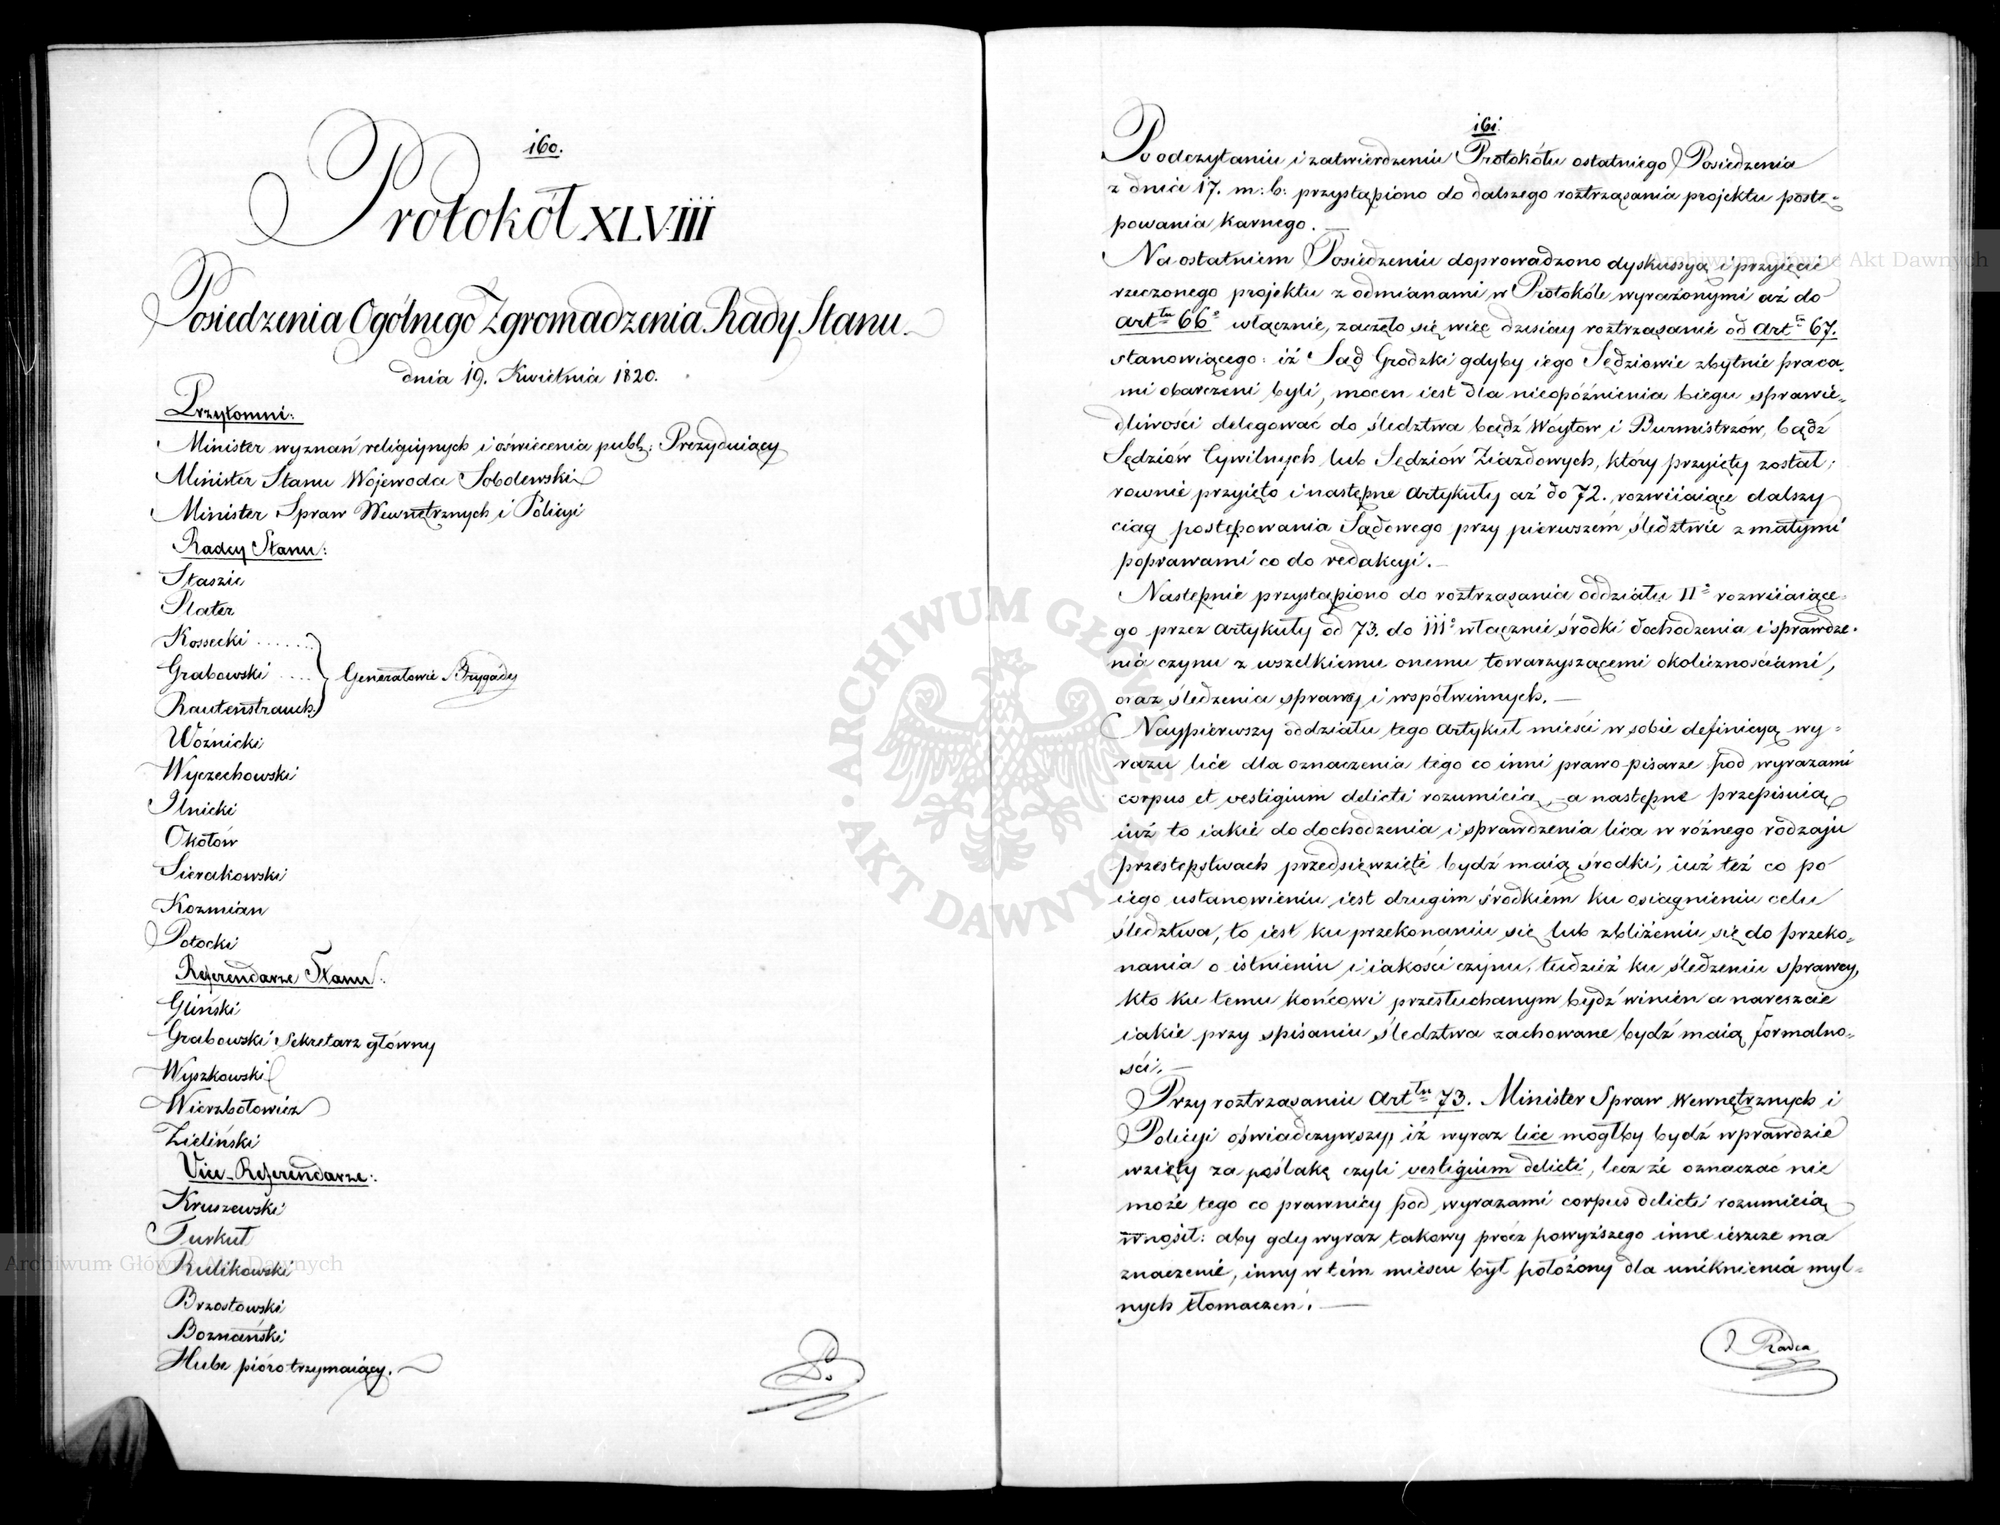 160.
Protokół XLVIII
Posiedzenia Ogólnego Zgromadzenia Rady Stanu.
dnia 19. Kwietnia 1820.
Przytomni:
Minister wyznań religiynych i oświecenia publ: Prezyduiący
Minister Stanu Wojewoda Sobolewski
Minister Spraw Wewnętrznych i Policyi
Radcy Stanu:
Staszic
Plater
Kossecki
Grabowski
Generałowie Brygady
Rautenstrauch
Woźnicki
Wyczechowski
Ilnicki
Okołów
Sierakowski
Kozmian
Potocki
Referendarze Stanu:
Gliński
Grabowski Sekretarz główny
Wyszkowski
Wierzbołowicz
Zieliński
Vice-Referendarze:
Kruszewski
Turkuł
Rulikowski
Brzostowski
Boznański
Hube pióro trzymaiący.
Po.
161.
Po odczytaniu i zatwierdzeniu Protokółu ostatniego Posiedzenia
z dnia 17. m: b: przystąpiono do dalszego roztrząsania projektu postę-
powania karnego.
Na ostatniem Posiedzeniu doprowadzono dyskussyą i przyięcie
rzeczonego projektu z odmianami w Protokóle wyrażonymi aż do
Artłu 66o włącznie, zaczęło się więc dzisiay roztrząsanie od Artłu 67.
stanowiącego: iż Sąd Grodzki gdyby iego Sędziowie zbytnie praca-
mi obarczeni byli, mocen iest dla nieopóźnienia biegu sprawie-
dliwości delegować do śledztwa bądź Wóytów i Burmistrzów, bądź
Sędziów Cywilnych lub Sędziów Ziazdowych, który przyięty został;
rownie przyięto i następne Artykuły aż do 72. rozwiiaiące dalszy
ciąg postępowania Sądowego przy pierwszem śledztwie z małymi
poprawami co do redakcyi.
Następnie przystąpiono do roztrząsania oddziału IIo rozwiiaiące-
go przez Artykuły od 73. do 111o włącznie środki dochodzenia i sprawdze-
nia czynu z wszelkiemi onemu towarzyszącemi okolicznościami,
oraz śledzenia sprawcy i wspólwinnych.
Naypierwszy oddziału tego Artykuł mieści w sobie definicyą wy-
razu lice dla oznaczenia tego co inni prawo-pisarze pod wyrazami
corpus et vestigium delicti rozumieią, a następne przepisuią
iuż to iakie do dochodzenia i sprawdzenia lica w różnego rodzaju
przestępstwach przedsięwzięte bydź maią środki, iuż też co po
iego ustanowieniu iest drugim środkiem ku osiągnieniu celu
śledztwa, to iest ku przekonaniu się lub zbliżeniu się do przeko-
nania o istnieniu i iakości czynu, tudzież ku śledzeniu sprawcy,
kto ku temu końcowi przesłuchanym bydź winien a nareszcie
iakie przy spisaniu śledztwa zachowane bydź maią formalno-
ści.
Przy roztrząsaniu Artłu 73. Minister Spraw Wewnętrznych i
Policyi oświadczywszy, iż wyraz lice mógłby bydź wprawdzie
wzięty za poślakę czyli vestigium delicti, lecz że oznaczać nie
może tego co prawnicy pod wyrazami corpus delicti rozumieią
wnosił: aby gdy wyraz takowy prócz powyższego inne ieszcze ma
znaczenie, inny w tém mieścu był położony dla uniknienia myl-
nych tłomaczeń.
Radca
Archiwum Główne Akt Dawnych
Archiwum Główne Akt Dawnych
ARCHIWUM GŁÓWNE AKT DAWNYCH